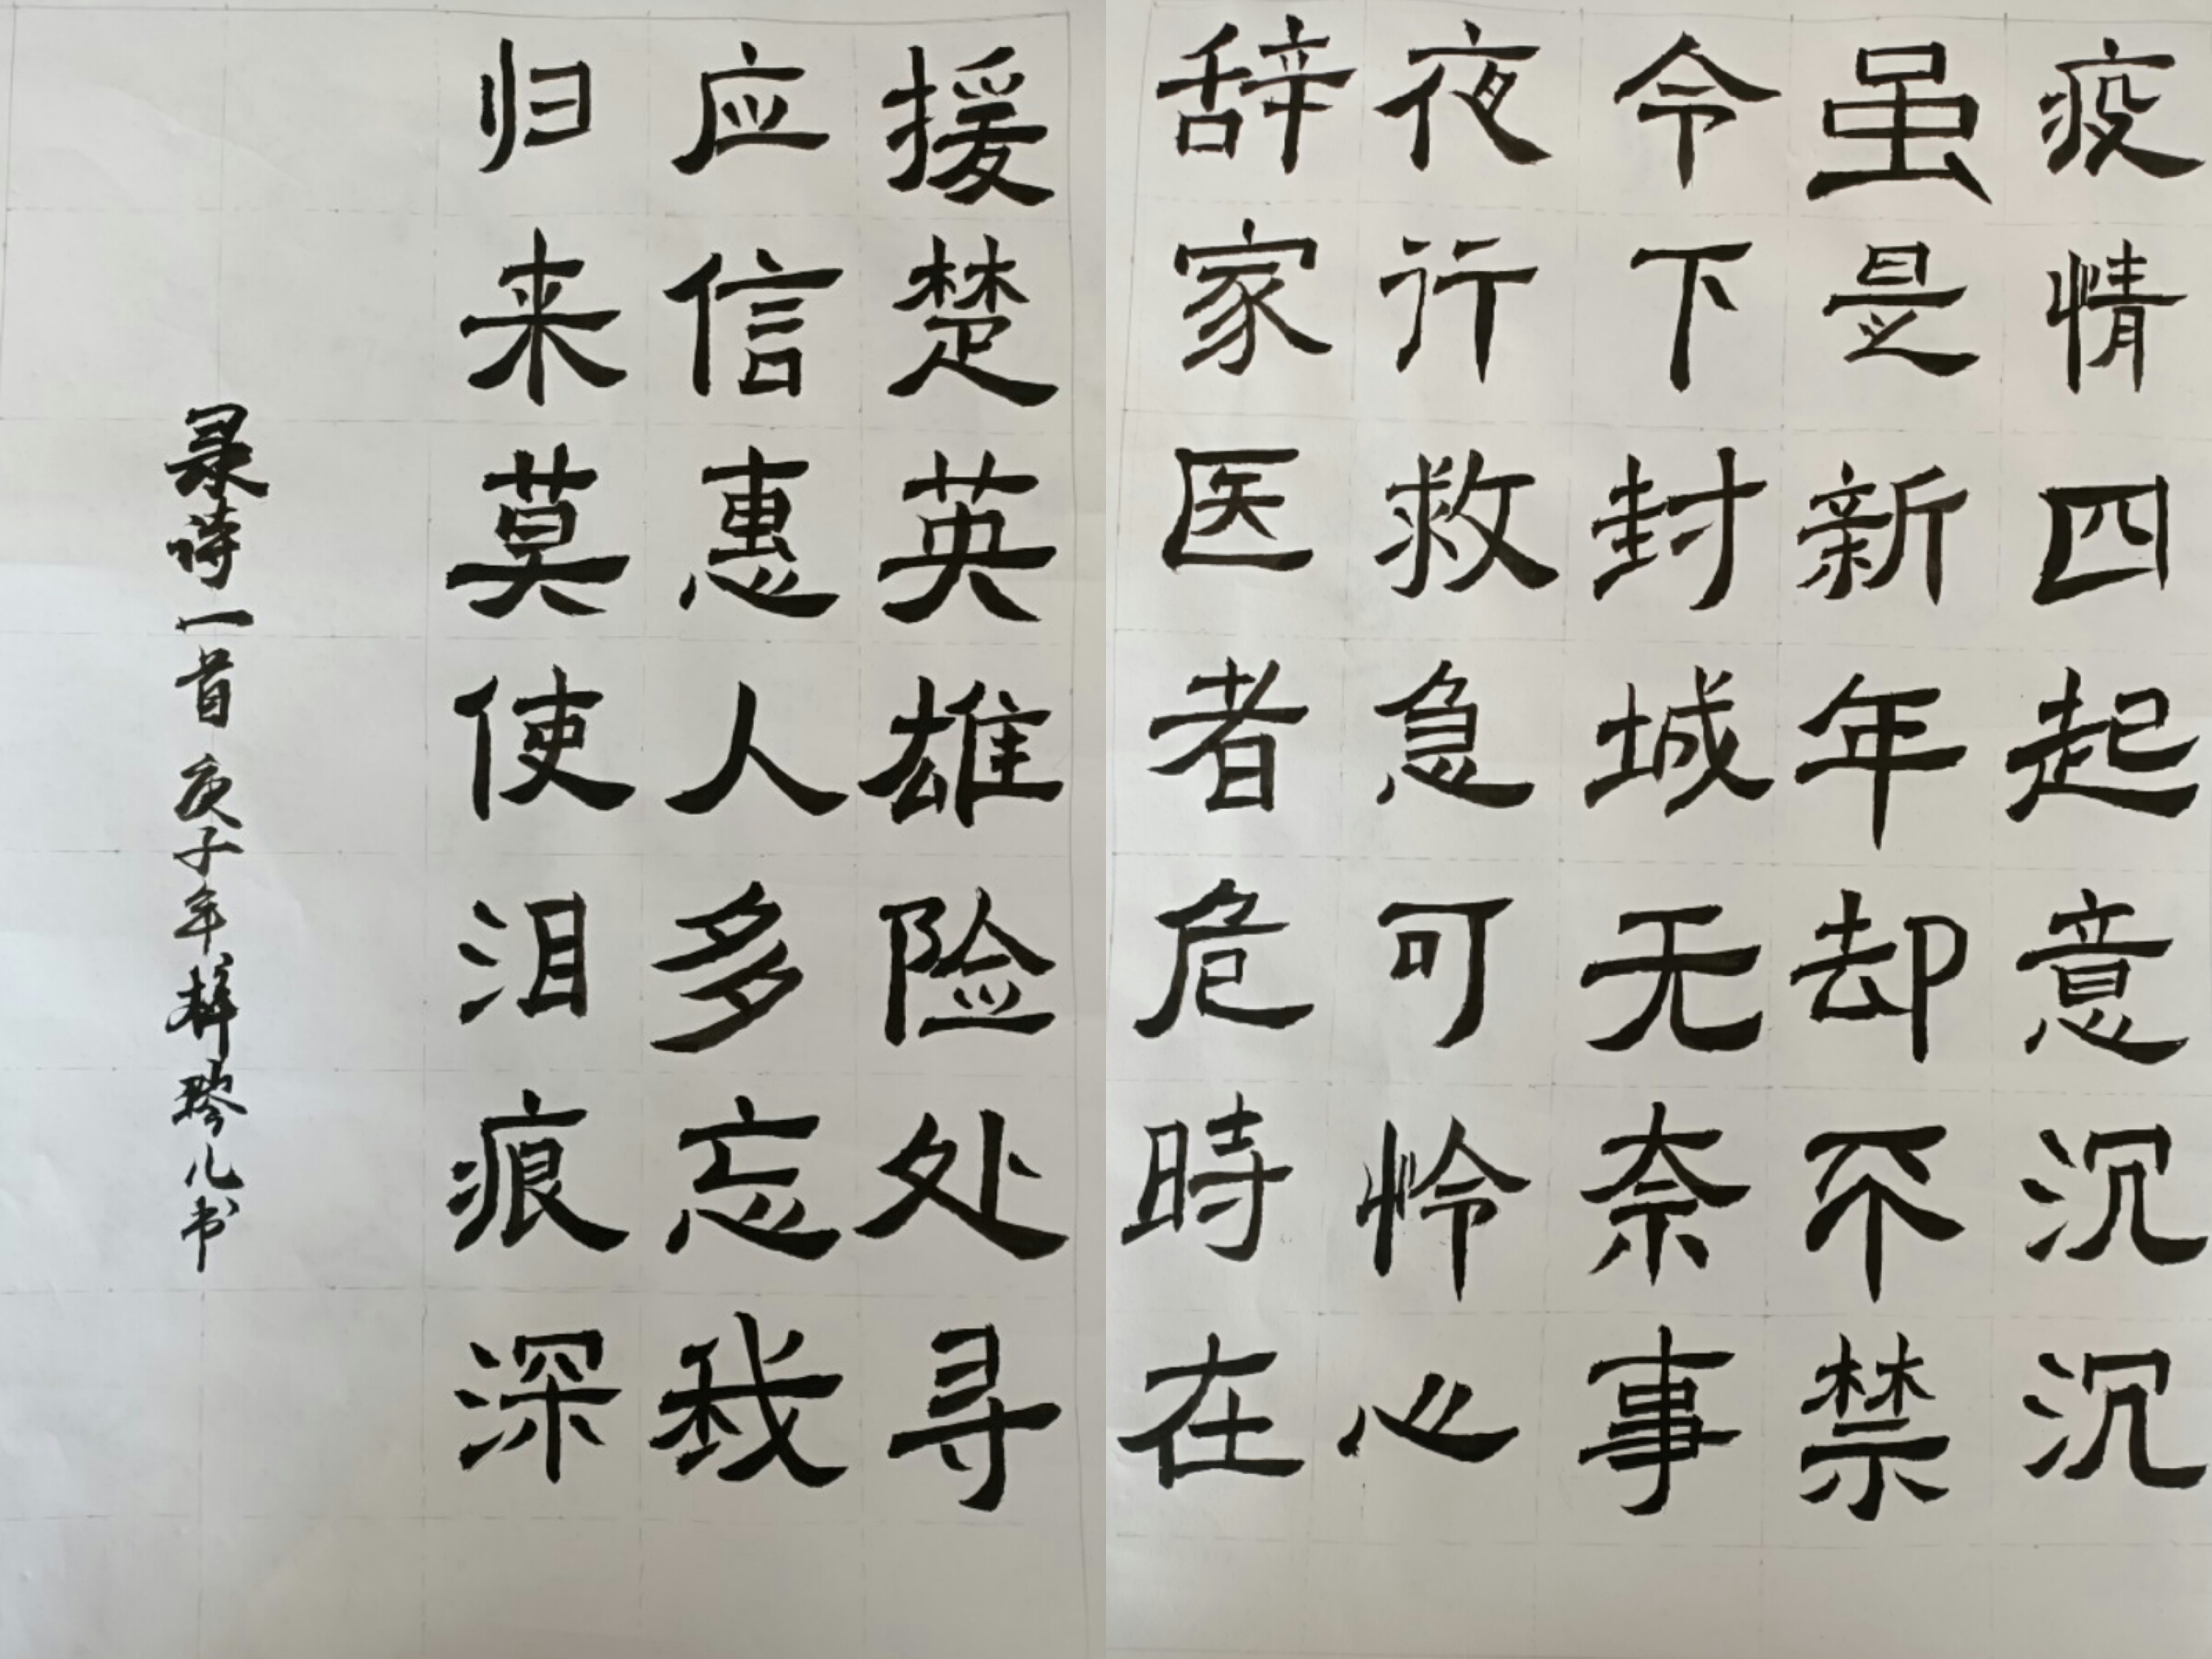 疫情四起意沉沉
虽是新年却不禁
令下封城无奈事
夜行救急可怜心
辞家医者危時在
援楚英雄险处寻
应信惠人多忘我
归来莫使泪痕深
录诗一首庚子年梓琴儿书